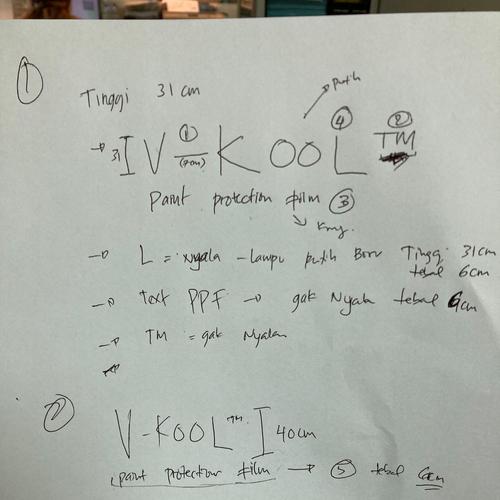 ①
Tinggi 31 cm
→ putih
① ④ ②
→ 31 I V — KOOL TM
paint protection film ③
↳ Kng.
→ L = Nyala - lampu putih Tinggi 31cm
tebal 6cm
→ text PPF → gak Nyala tebal 6cm
→ TM = gak Nyala
②
V-KOOL™ I 40cm
paint protection film → ⑤ tebal 6cm